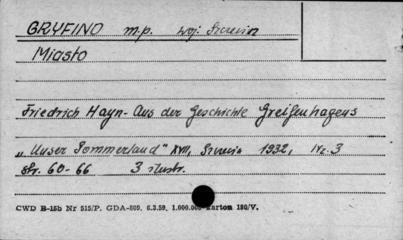 GRYFINO m.p. woj. Szczecin
Miasto
Friedrich Hayn - Aus der Geschichte Greifenhagens
„Unser Pommerland" XVII, Szczecin 1932, nr. 3
str. 60-66 3 ilustr.
CWD B-15b Nr 515/P. GDA-809. 6.3.59. 1.000.000 karton 180/V.